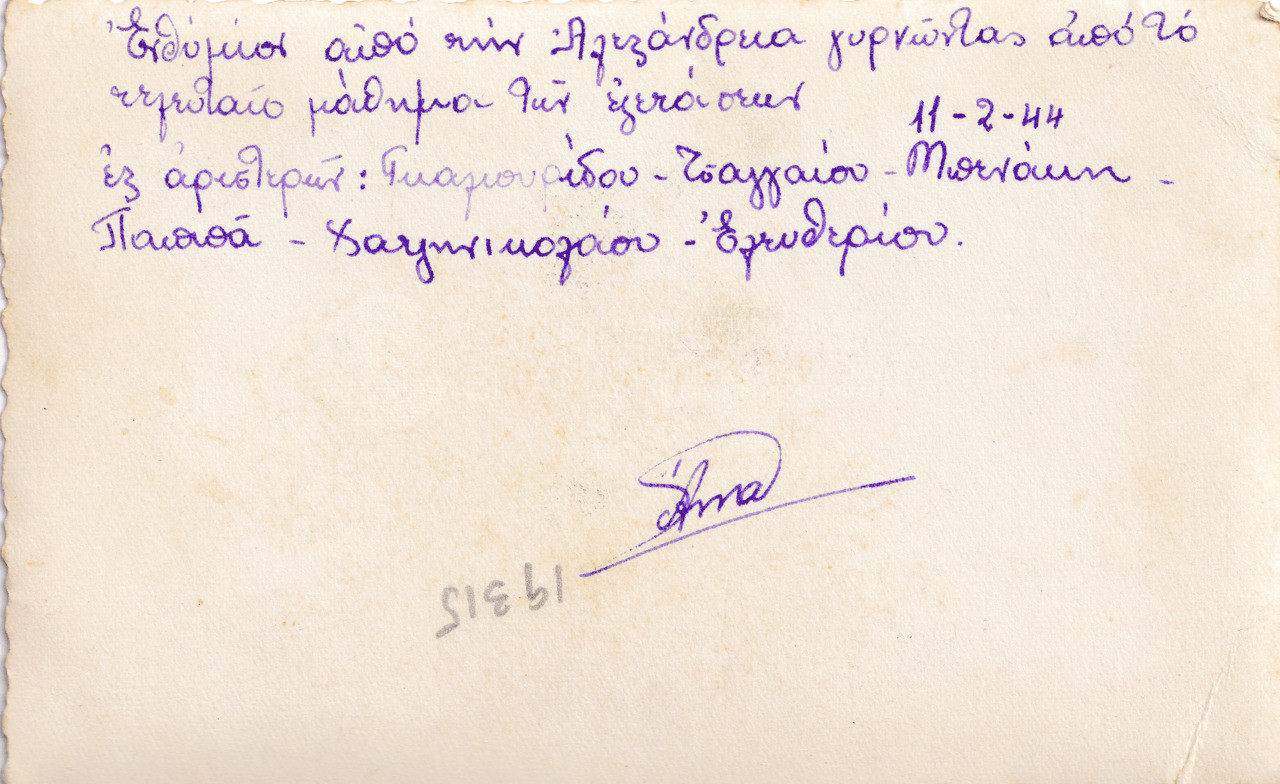 Ἐνθύμιον ἀπό τήν Ἀλεξάνδρεια γυρνῶντας ἀπό τό
τελευταῖο μάθημα τῶν ἐξετάσεων
11-2-44
ἐξ ἀριστερῶν: Γκαμουρίδου - Τσαγγαίου - Μπενάκη -
Παππᾶ - Χατζηνικολάου - Ἐλευθερίου.
Ἄννα
19315